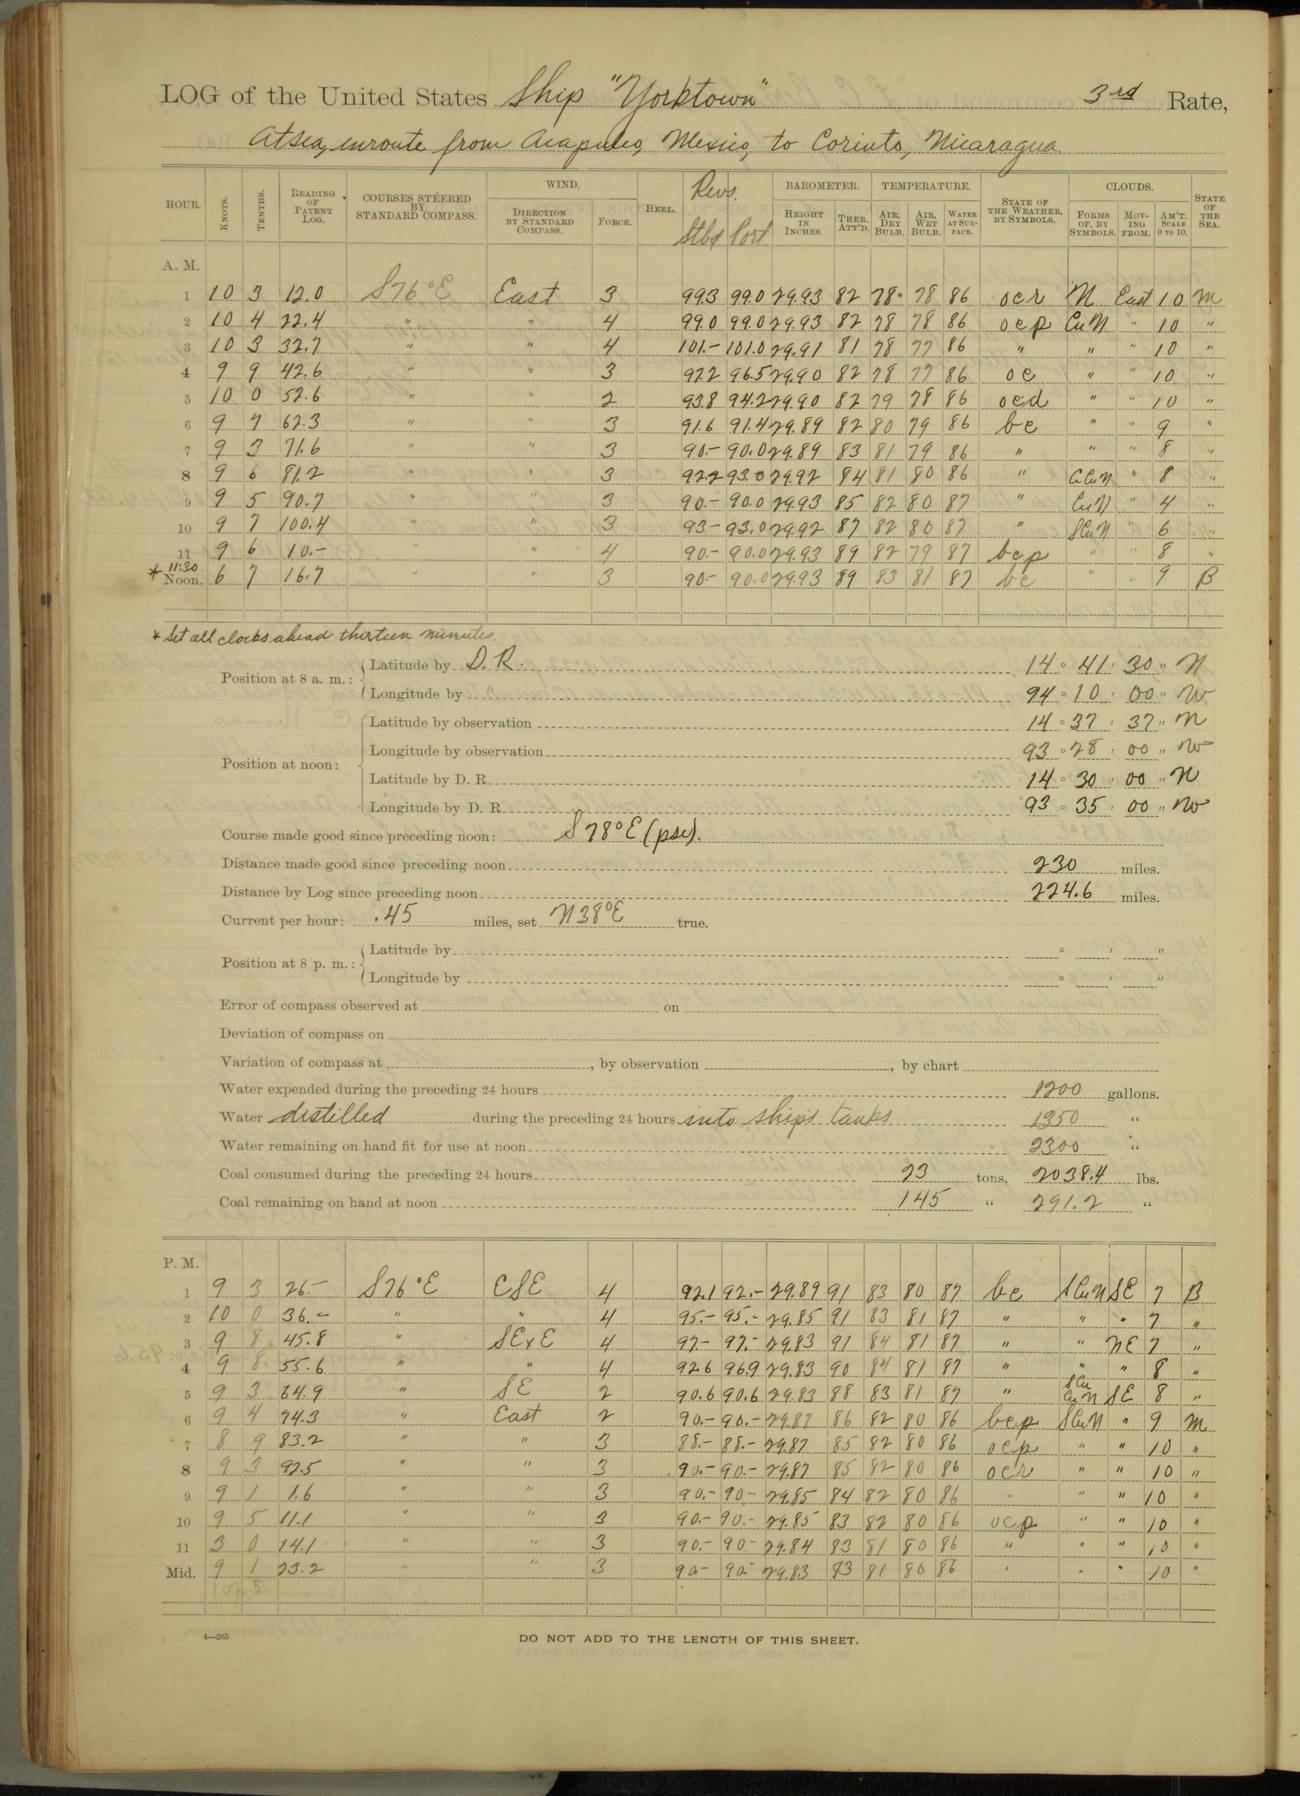 LOG of the United States Ship "Yorktown" 3rd Rate,
At sea, enroute from Acapulco, Mexico, to Corinto, Nicaragua.
HOUR. KNOTS. TENTHS. READING OF PATENT LOG. COURSES STEERED BY STANDARD COMPASS. WIND. DIRECTION BY STANDARD COMPASS. FORCE. HEEL. Revs. Stbd Port BAROMETER. HEIGHT IN INCHES. THER. ATT'D. TEMPERATURE. AIR, DRY BULB. AIR, WET BULB. WATER AT SURFACE. STATE OF THE WEATHER, BY SYMBOLS. CLOUDS. FORMS OF, BY SYMBOLS. MOVING FROM. AM'T. SCALE 0 TO 10. STATE OF THE SEA.
A. M.
1 10 3 12.0 S76°E East 3 99.3 99.0 29.93 82 78 78 86 ocr N East 10 M
2 10 4 22.4 " " 4 99.0 99.0 29.93 82 78 78 86 ocp CuN " 10 "
3 10 3 32.7 " " 4 101.- 101.0 29.91 81 78 77 86 " " " 10 "
4 9 9 42.6 " " 3 97.2 96.5 29.90 82 78 77 86 oc " " 10 "
5 10 0 52.6 " " 2 93.8 94.2 29.90 82 79 78 86 ocd " " 10 "
6 9 7 62.3 " " 3 91.6 91.4 29.89 82 80 79 86 bc " " 9 "
7 9 3 71.6 " " 3 90.- 90.0 29.89 83 81 79 86 " " " 8 "
8 9 6 81.2 " " 3 92.2 93.0 29.92 84 81 80 86 " CuN " 8 "
9 9 5 90.7 " " 3 90.- 90.0 29.93 85 82 80 87 " CuN " 4 "
10 9 7 100.4 " " 3 93.- 93.0 29.92 87 82 80 87 " SCuN " 6 "
11 9 6 10.- " " 4 90.- 90.0 29.93 89 82 79 87 bcp " " 8 "
* 11:30 Noon. 6 7 16.7 " " 3 90.- 90.0 29.93 89 83 81 87 bc " " 9 B
* Set all clocks ahead thirteen minutes.
Position at 8 a. m.: Latitude by D.R. 14 ° 41 ' 30 " N
Longitude by 94 ° 10 ' 00 " W
Position at noon: Latitude by observation 14 ° 37 ' 37 " N
Longitude by observation 93 ° 28 ' 00 " W
Latitude by D. R. 14 ° 30 ' 00 " N
Longitude by D. R. 93 ° 35 ' 00 " W
Course made good since preceding noon: S78°E (psc).
Distance made good since preceding noon 230 miles.
Distance by Log since preceding noon 224.6 miles.
Current per hour: .45 miles, set N38°E true.
Position at 8 p. m.: Latitude by ° ' "
Longitude by ° ' "
Error of compass observed at on
Deviation of compass on
Variation of compass at , by observation , by chart
Water expended during the preceding 24 hours 1200 gallons.
Water distilled during the preceding 24 hours into ships tanks 1350 "
Water remaining on hand fit for use at noon 2300 "
Coal consumed during the preceding 24 hours 23 tons, 2038.4 lbs.
Coal remaining on hand at noon 145 " 291.2 "
P. M.
1 9 3 26.- S76°E ESE 4 92.1 92.- 29.89 91 83 80 87 bc SCuN SE 7 B
2 10 0 36.- " " 4 95.- 95.- 29.85 91 83 81 87 " " " 7 "
3 9 8 45.8 " SExE 4 97.- 97.- 29.83 91 84 81 87 " " NE 7 "
4 9 8 55.6 " " 4 92.6 96.9 29.83 90 84 81 87 " " " 8 "
5 9 3 64.9 " SE 2 90.6 90.6 29.83 88 83 81 87 " SCu CuN SE 8 "
6 9 4 74.3 " East 2 90.- 90.- 29.87 86 82 80 86 bcp SCuN " 9 M
7 8 9 83.2 " " 3 88.- 88.- 29.87 85 82 80 86 ocp " " 10 "
8 9 3 92.5 " " 3 90.- 90.- 29.87 85 82 80 86 ocr " " 10 "
9 9 1 1.6 " " 3 90.- 90.- 29.85 84 82 80 86 " " " 10 "
10 9 5 11.1 " " 3 90.- 90.- 29.85 83 82 80 86 ocp " " 10 "
11 3 0 14.1 " " 3 90.- 90.- 29.84 83 81 80 86 " " " 10 "
Mid. 9 1 23.2 " " 3 90.- 90.- 29.83 83 81 80 86 " " " 10 "
4—265
DO NOT ADD TO THE LENGTH OF THIS SHEET.